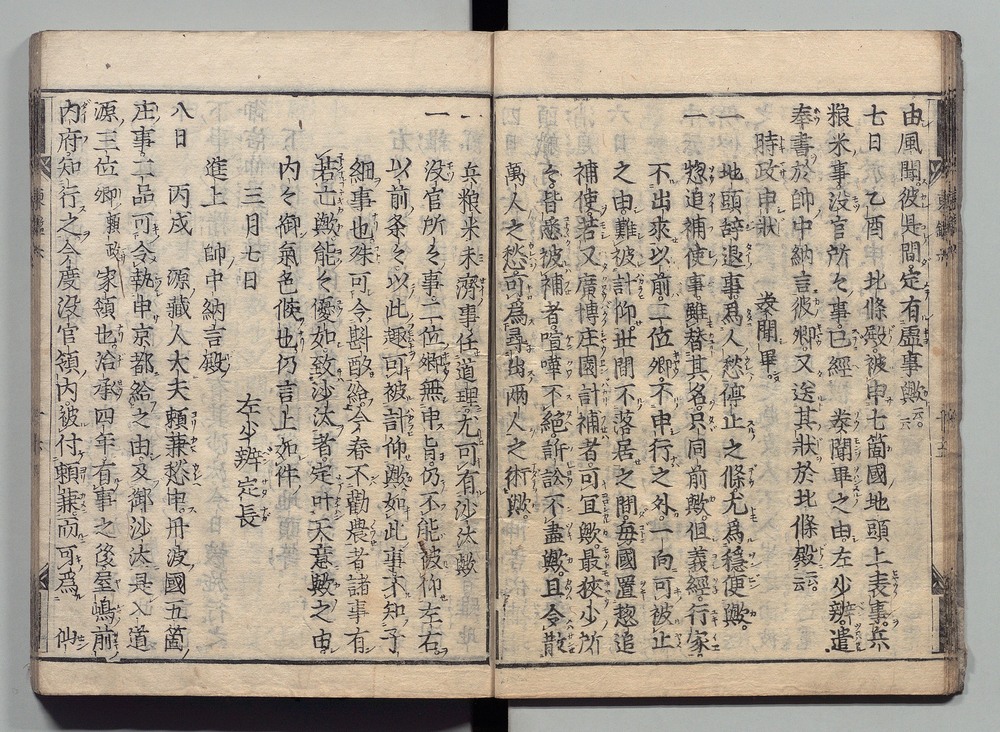 由風聞彼是間定有虚事歟云云
七日 乙酉 北條殿被申七箇國地頭上表事兵
粮米事没官所々事已經 奏聞畢之由左少辨遣
奉書於帥中納言彼卿又送其狀於北條殿云云
時政申狀 奏聞畢
一地頭辞退事為人愁停止之條尤為穩便歟
一惣追補使事雖替其名只同前歟但義經行家
不出來以前二位卿不申行之外一向可被止
之由難被計仰世間不落居之間毎國置惣追
補使若又廣博庄園計補者可宜歟最狹小所
々皆悉被補者喧嘩不絶訴訟不盡歟且令散
萬人之愁可為尋出兩人之術歟
一兵粮米未濟事任道理尤可有沙汰歟
一没官所々事二位卿無申旨仍不能被仰左右
以前条々以此趣可被計仰歟如此事不知子
細事也殊可令斟酌給今春不勸農者諸事有
若亡歟能々優如致沙汰者定叶天意歟之由
内々御氣色候也仍言上如件
三月七日 左少辨定長
進上 帥中納言殿
八日 丙戌 源藏人大夫頼兼愁申丹波國五箇
庄事二品可令執申京都給之由及御沙汰是入道
源三位卿頼政家領也治承四年有事之後屋嶋前
内府知行之今度没官領内被付頼兼而可為 仙